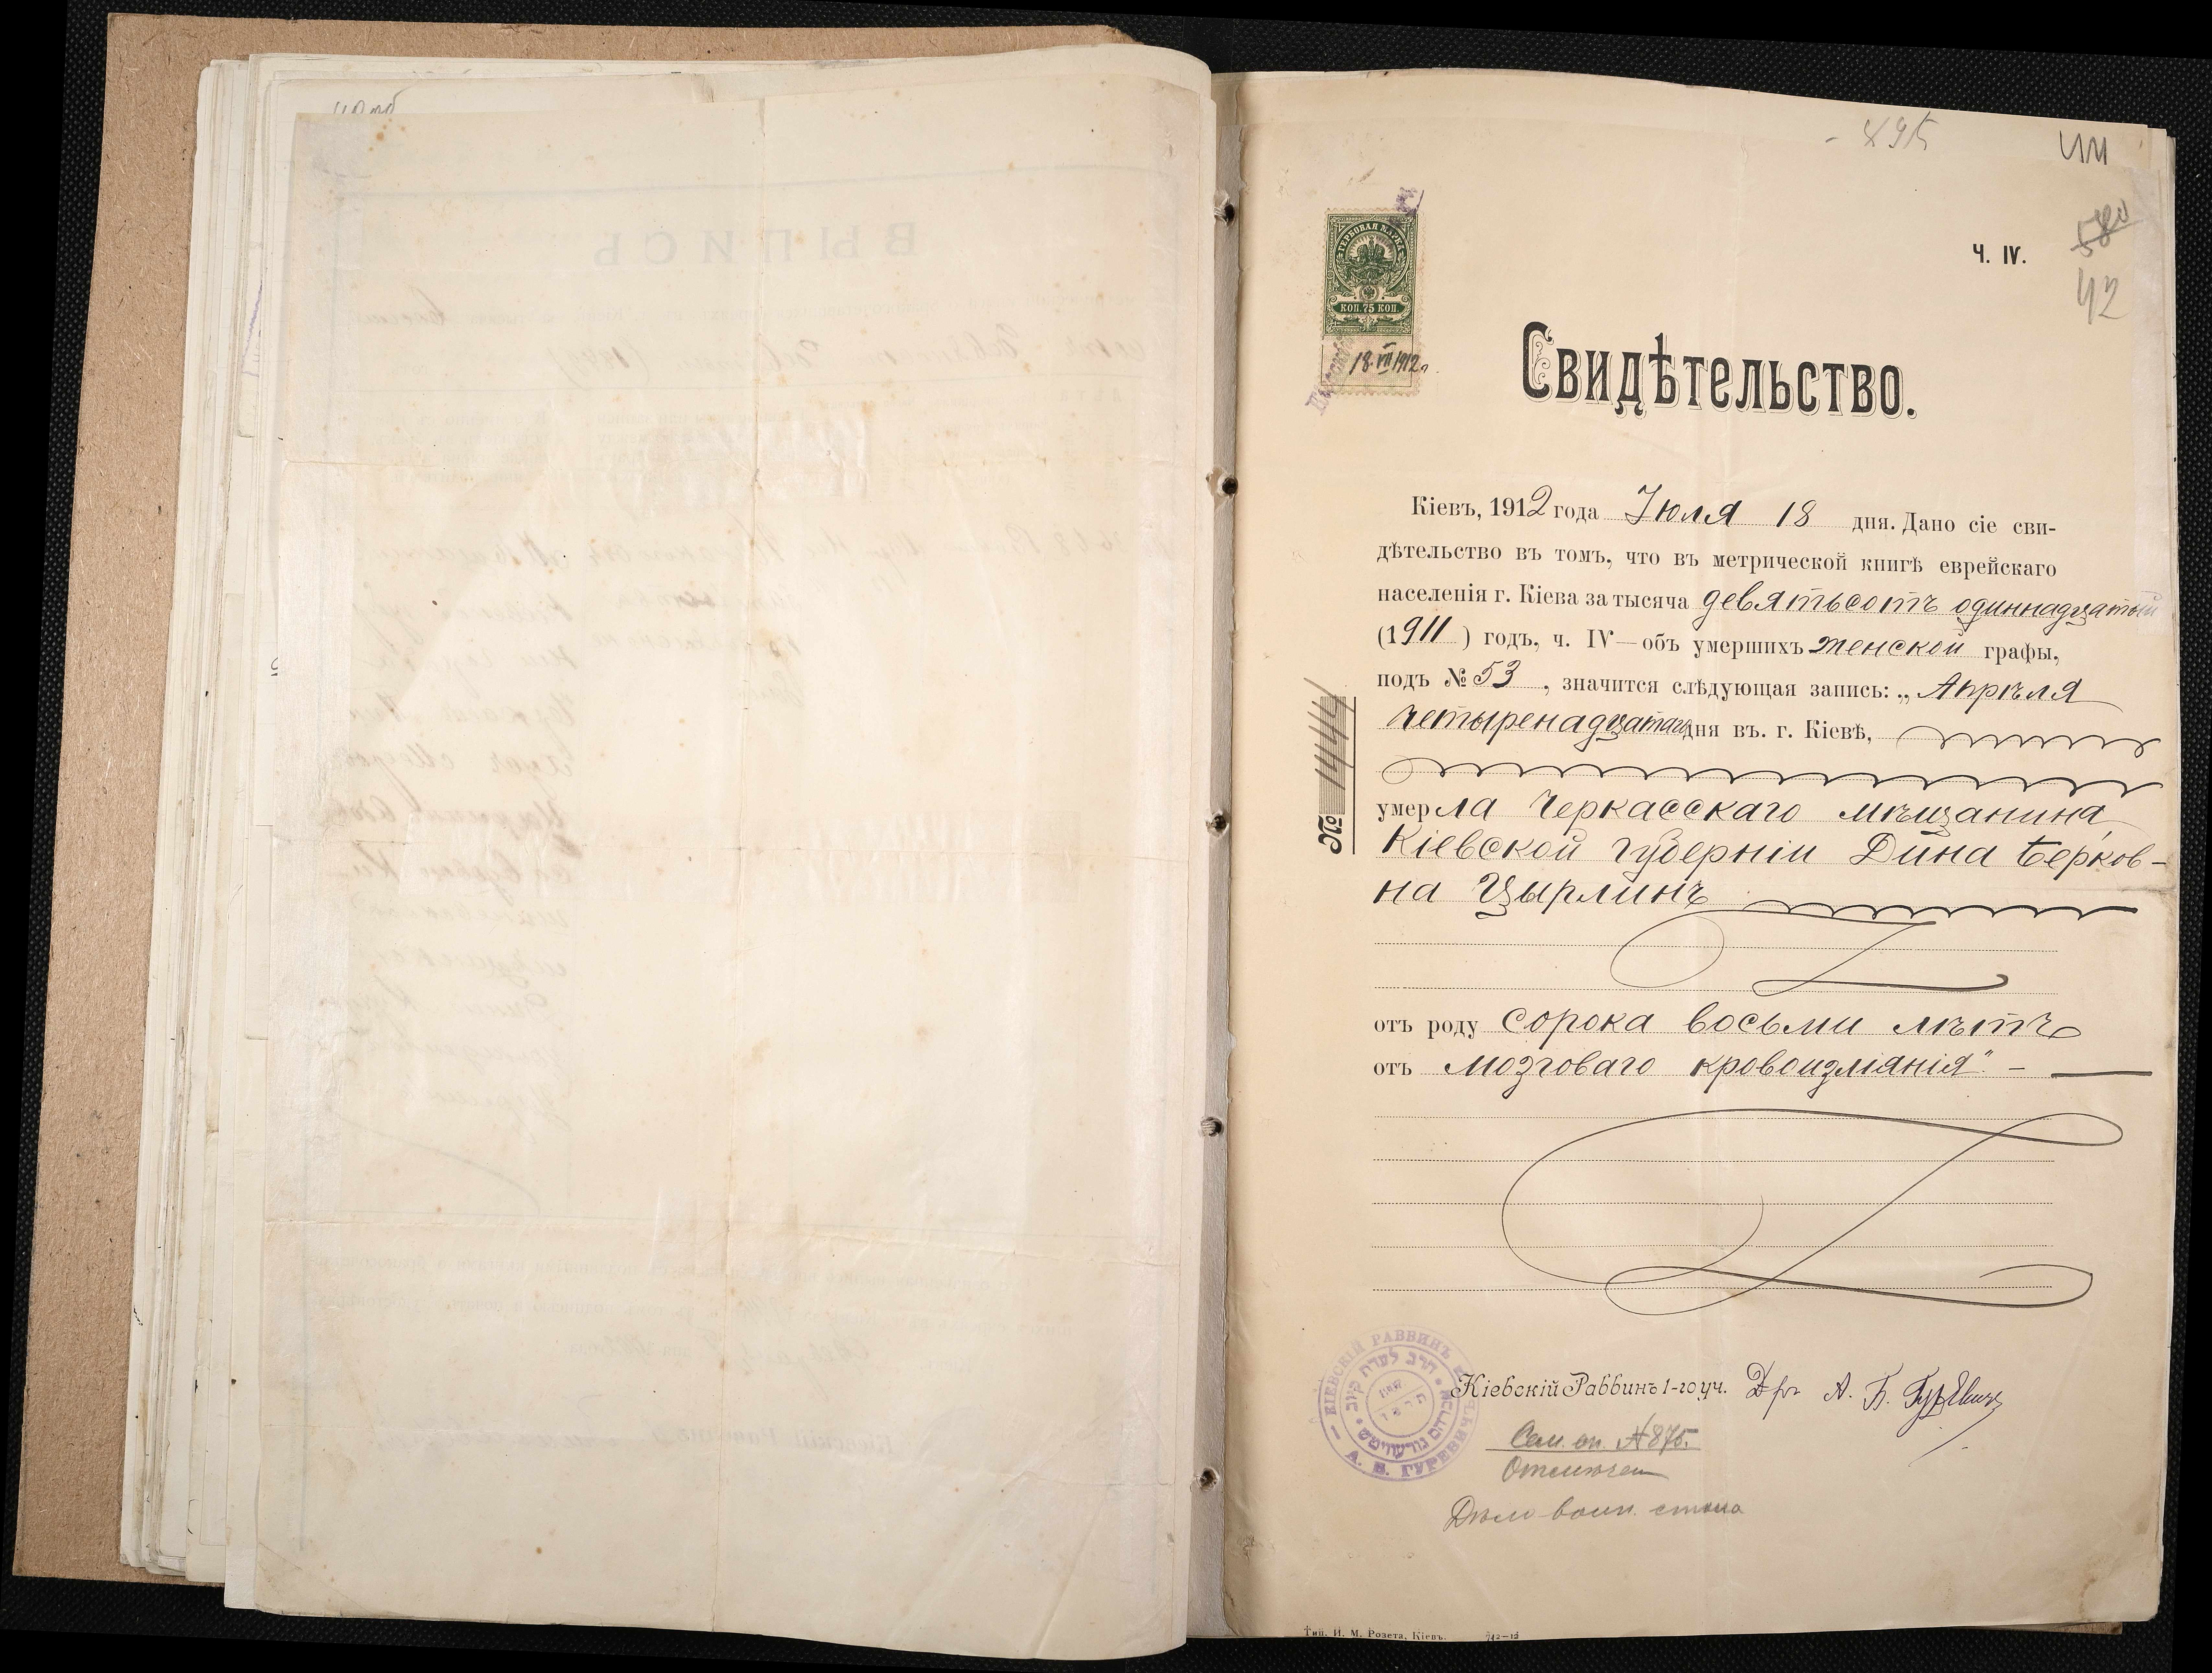 ВЫПИСЬ
42
Ч. IV.
ГЕРБОВАЯ МАРКА
КОП. 75 КОП.
18 VII 1912 г.
Свидѣтельство.
Кіевъ, 1912 года Іюля 18 дня. Дано сіе сви-
дѣтельство въ томъ, что въ метрической книгѣ еврейскаго
населенія г. Кіева за тысяча девятьсотъ одиннадцатый
(1911) годъ, ч. IV—объ умершихъ женской графы,
подъ № 53, значится слѣдующая запись: „Апрѣля
четыренадцатаго дня въ. г. Кіевѣ,
умерла Черкасскаго мѣщанина,
Кіевской губерніи Дина Берков-
на Цырлинъ
отъ роду сорока восьми лѣтъ
отъ мозговаго кровоизліянія" —
№ 1444
КІЕВСКІЙ РАВВИНЪ
А. Б. ГУРЕВИЧЪ
הרב לעדת קיוב
אברהם גורעוויטש
Кіевскій Раввинъ 1-го уч. Д-ръ А. Б. Гуревичъ
Сем. сп. № 875.
Дѣло воин. стола
Тип. И. М. Розета, Кіевъ. 712—12